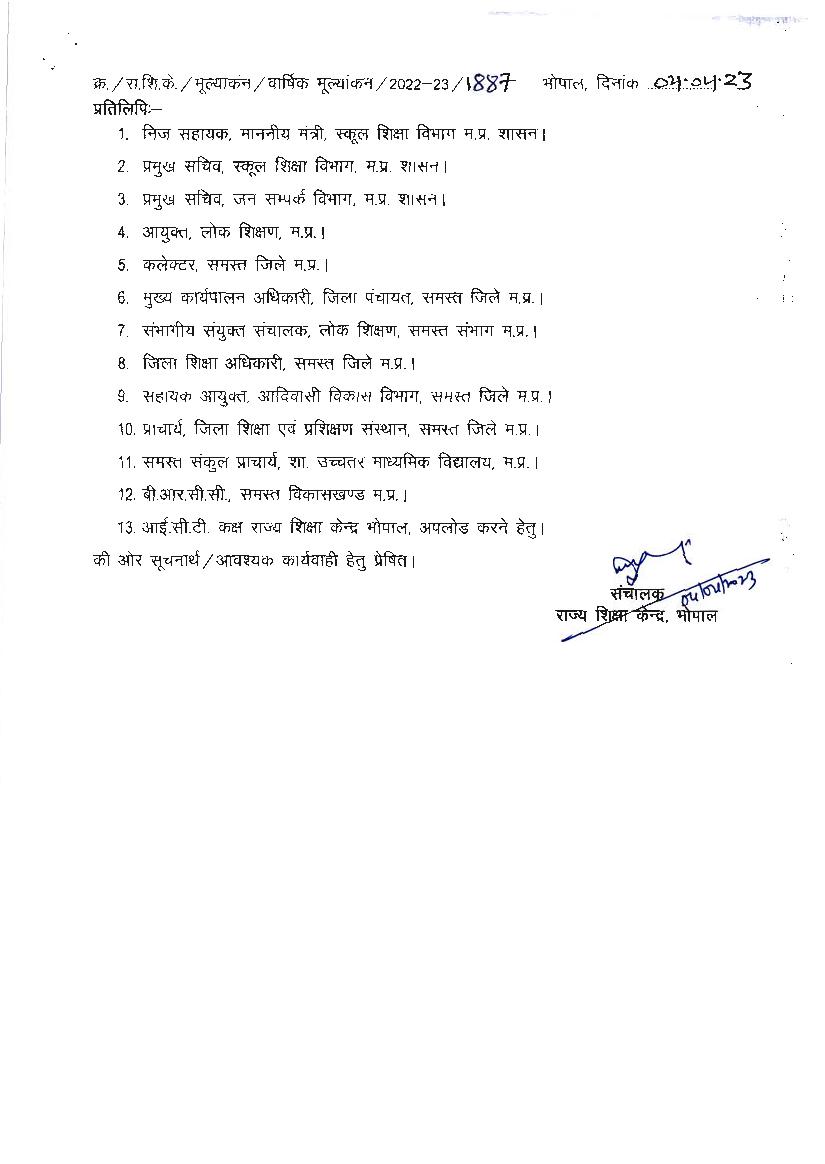 क्र./रा.शि.के./मूल्याकंन/वार्षिक मूल्यांकन/2022-23/1887 भोपाल, दिनांक 04.04.23
प्रतिलिपिः–
1. निज सहायक, माननीय मंत्री, स्कूल शिक्षा विभाग म.प्र. शासन।
2. प्रमुख सचिव, स्कूल शिक्षा विभाग, म.प्र. शासन।
3. प्रमुख सचिव, जन सम्पर्क विभाग, म.प्र. शासन।
4. आयुक्त, लोक शिक्षण, म.प्र.।
5. कलेक्टर, समस्त जिले म.प्र.।
6. मुख्य कार्यपालन अधिकारी, जिला पंचायत, समस्त जिले म.प्र.।
7. संभागीय संयुक्त संचालक, लोक शिक्षण, समस्त संभाग म.प्र.।
8. जिला शिक्षा अधिकारी, समस्त जिले म.प्र.।
9. सहायक आयुक्त, आदिवासी विकास विभाग, समस्त जिले म.प्र.।
10. प्राचार्य, जिला शिक्षा एवं प्रशिक्षण संस्थान, समस्त जिले म.प्र.।
11. समस्त संकुल प्राचार्य, शा. उच्चतर माध्यमिक विद्यालय, म.प्र.।
12. बी.आर.सी.सी., समस्त विकासखण्ड म.प्र.।
13. आई.सी.टी. कक्ष राज्य शिक्षा केन्द्र भोपाल, अपलोड करने हेतु।
की ओर सूचनार्थ/आवश्यक कार्यवाही हेतु प्रेषित।
संचालक 04/04/2023
राज्य शिक्षा केन्द्र, भोपाल